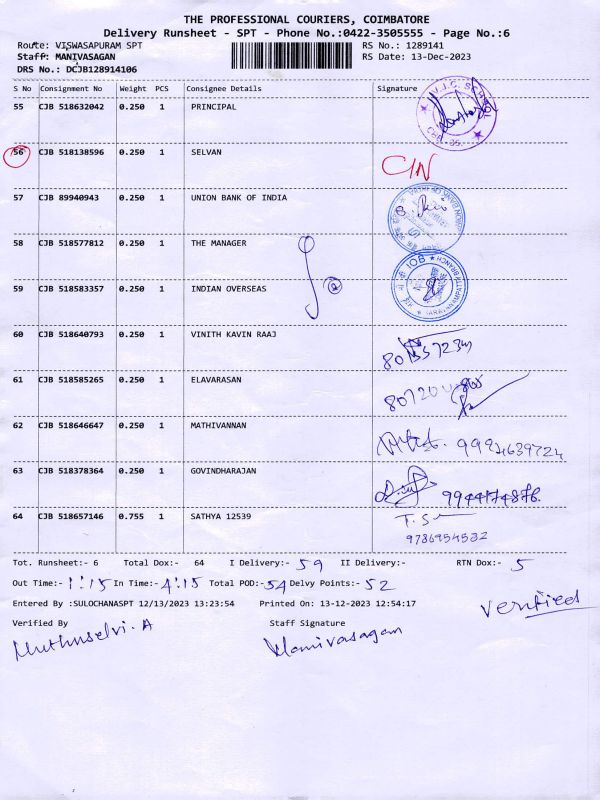 THE PROFESSIONAL COURIERS, COIMBATORE
Delivery Runsheet - SPT - Phone No.:0422-3505555 - Page No.:6
Route: VISWASAPURAM SPT RS No.: 1289141
Staff: MANIVASAGAN RS Date: 13-Dec-2023
DRS No.: DCJB128914106
S No Consignment No Weight PCS Consignee Details Signature
55 CJB 518632042 0.250 1 PRINCIPAL
56 CJB 518138596 0.250 1 SELVAN C/N
57 CJB 89940943 0.250 1 UNION BANK OF INDIA
58 CJB 518577812 0.250 1 THE MANAGER
59 CJB 518583357 0.250 1 INDIAN OVERSEAS
60 CJB 518640793 0.250 1 VINITH KAVIN RAAJ
61 CJB 518585265 0.250 1 ELAVARASAN
62 CJB 518646647 0.250 1 MATHIVANNAN 9994639724
63 CJB 518378364 0.250 1 GOVINDHARAJAN
64 CJB 518657146 0.755 1 SATHYA 12539 T.S
9786954532
Tot. Runsheet:- 6 Total Dox:- 64 I Delivery:- 59 II Delivery:- RTN Dox:- 5
Out Time:- 1:15 In Time:- 4:15 Total POD:- 54 Delvy Points:- 52
Entered By :SULOCHANASPT 12/13/2023 13:23:54 Printed On: 13-12-2023 12:54:17 Verified
Verified By Staff Signature
Muthuselvi.A Manivasagan